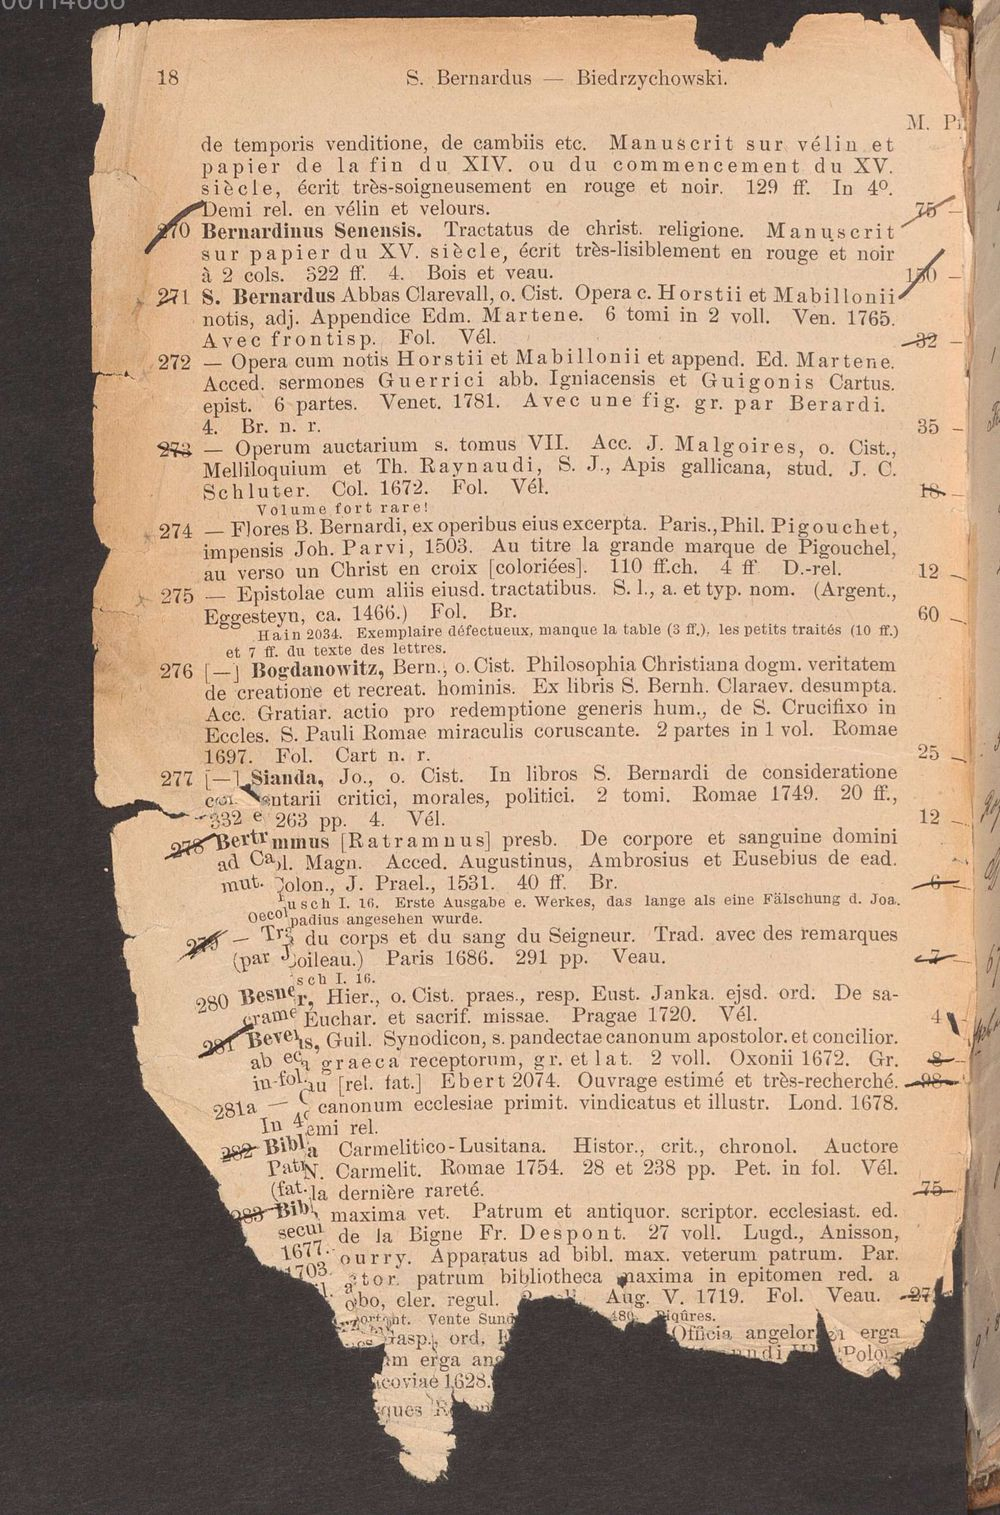 00114686
18 S. Bernardus — Biedrzychowski.
M. Pf
de temporis venditione, de cambiis etc. Manuscrit sur vélin et
papier de la fin du XIV. ou du commencement du XV.
siècle, écrit très-soigneusement en rouge et noir. 129 ff. In 4º.
Demi rel. en vélin et velours. 75 —
270 Bernardinus Senensis. Tractatus de christ. religione. Manuscrit
sur papier du XV. siècle, écrit très-lisiblement en rouge et noir
à 2 cols. 322 ff. 4. Bois et veau. 150 —
271 S. Bernardus Abbas Clarevall, o. Cist. Opera c. Horstii et Mabillonii
notis, adj. Appendice Edm. Martene. 6 tomi in 2 voll. Ven. 1765.
Avec frontisp. Fol. Vél. 32 —
272 — Opera cum notis Horstii et Mabillonii et append. Ed. Martene.
Acced. sermones Guerrici abb. Igniacensis et Guigonis Cartus.
epist. 6 partes. Venet. 1781. Avec une fig. gr. par Berardi.
4. Br. n. r. 35 —
273 — Operum auctarium s. tomus VII. Acc. J. Malgoires, o. Cist.,
Melliloquium et Th. Raynaudi, S. J., Apis gallicana, stud. J. C.
Schluter. Col. 1672. Fol. Vél. 18 —
Volume fort rare!
274 — Flores B. Bernardi, ex operibus eius excerpta. Paris., Phil. Pigouchet,
impensis Joh. Parvi, 1503. Au titre la grande marque de Pigouchel,
au verso un Christ en croix [coloriées]. 110 ff.ch. 4 ff D.-rel. 12 —
275 — Epistolae cum aliis eiusd. tractatibus. S. l., a. et typ. nom. (Argent.,
Eggesteyn, ca. 1466.) Fol. Br. 60 —
Hain 2034. Exemplaire défectueux, manque la table (3 ff.), les petits traités (10 ff.)
et 7 ff. du texte des lettres.
276 [—] Bogdanowitz, Bern., o. Cist. Philosophia Christiana dogm. veritatem
de creatione et recreat. hominis. Ex libris S. Bernh. Claraev. desumpta.
Acc. Gratiar. actio pro redemptione generis hum., de S. Crucifixo in
Eccles. S. Pauli Romae miraculis coruscante. 2 partes in 1 vol. Romae
1697. Fol. Cart n. r. 25 —
277 [—] Sianda, Jo., o. Cist. In libros S. Bernardi de consideratione
entarii critici, morales, politici. 2 tomi. Romae 1749. 20 ff.,
332 e 263 pp. 4. Vél. 12 —
278 Bertr mmus [Ratramnus] presb. De corpore et sanguine domini
ad Ca l. Magn. Acced. Augustinus, Ambrosius et Eusebius de ead.
mut. Colon., J. Prael., 1531. 40 ff. Br. 6 —
usch I. 16. Erste Ausgabe e. Werkes, das lange als eine Fälschung d. Joa.
Oecol padius angesehen wurde.
279 — Tra du corps et du sang du Seigneur. Trad. avec des remarques
(par Boileau.) Paris 1686. 291 pp. Veau. 7 —
sch I. 16.
280 Besne r, Hier., o. Cist. praes., resp. Eust. Janka. ejsd. ord. De sa-
crame Euchar. et sacrif. missae. Pragae 1720. Vél. 4
281 Beve s, Guil. Synodicon, s. pandectae canonum apostolor. et concilior.
ab ec graeca receptorum, gr. et lat. 2 voll. Oxonii 1672. Gr. 8 —
in-fol. au [rel. fat.] Ebert 2074. Ouvrage estimé et très-recherché. 98 —
281a — C canonum ecclesiae primit. vindicatus et illustr. Lond. 1678.
In 4 emi rel.
282 Bibl a Carmelitico-Lusitana. Histor., crit., chronol. Auctore
Pat N. Carmelit. Romae 1754. 28 et 238 pp. Pet. in fol. Vél.
(fat. la dernière rareté. 75
283 Bib maxima vet. Patrum et antiquor. scriptor. ecclesiast. ed.
secun de la Bigne Fr. Despont. 27 voll. Lugd., Anisson,
1677. ourry. Apparatus ad bibl. max. veterum patrum. Par.
1703. tor. patrum bibliotheca maxima in epitomen red. a
obo, cler. regul. Aug. V. 1719. Fol. Veau. 27
nt. Vente Sund 480. Piqûres.
Gasp., ord. Officia angelor erga
m erga an ndi Polo
coviae 1628.
ques